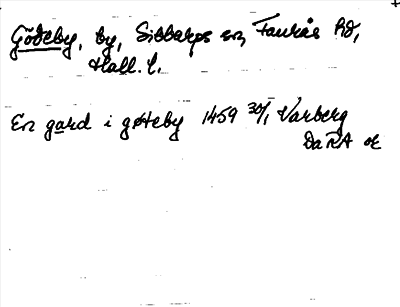 Gödeby, by, Sibbarps sn, Faurås hd,
Hall. l.
En gard i gøteby 1459 30/1 Varberg
DaRA or